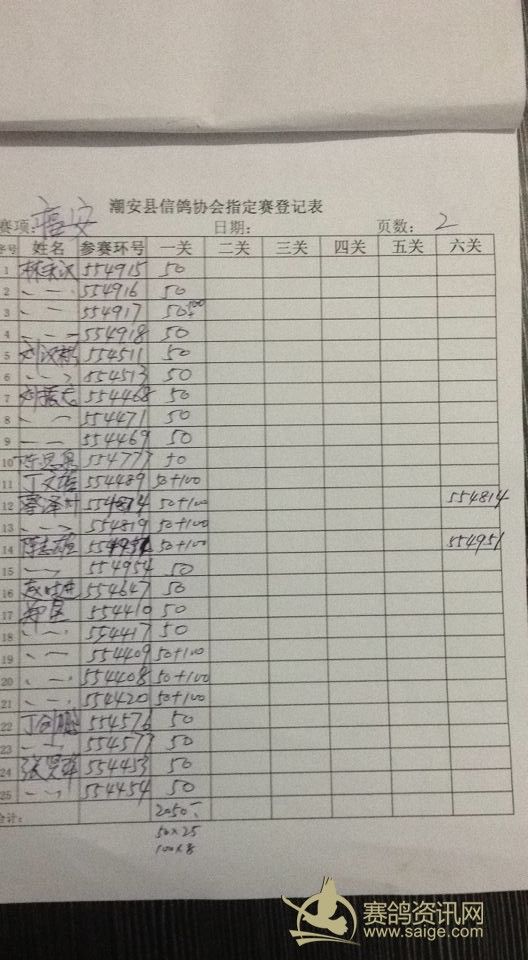 潮安县信鸽协会指定赛登记表
赛项: 安 日期: 页数: 2
序号 姓名 参赛环号 一关 二关 三关 四关 五关 六关
1 554915 50
2 〃 〃 554916 50
3 〃 〃 554917 50+100
4 〃 〃 554918 50
5 554511 50
6 〃 〃 554513 50
7 554468 50
8 〃 〃 554471 50
9 〃 〃 554469 50
10 554777 50
11 554489 50+100
12 554814 50+100 554814
13 〃 〃 554819 50+100
14 陈志雄 554951 50+100 554951
15 〃 〃 554954 50
16 554647 50
17 554410 50
18 〃 〃 554417 50
19 〃 〃 554409 50+100
20 〃 〃 554408 50+100
21 〃 〃 554420 50+100
22 丁剑鹏 554576 50
23 〃 〃 554577 50
24 554453 50
25 〃 〃 554454 50
合计: 2050
50×25
100×8
赛鸽资讯网
www.saige.com